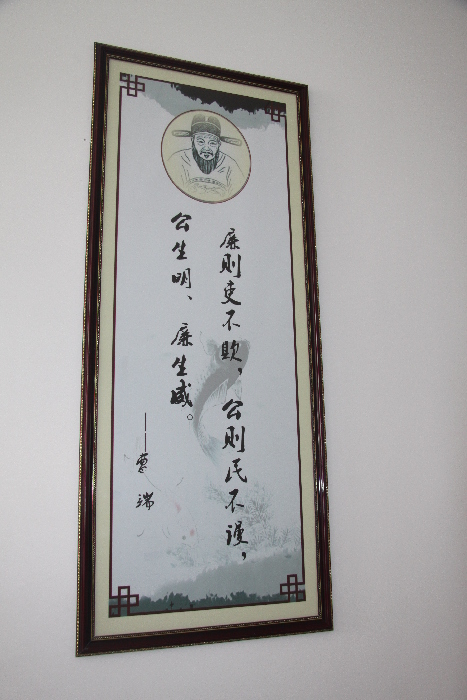 廉则吏不欺，公则民不谩，
公生明、廉生威。
——曹端